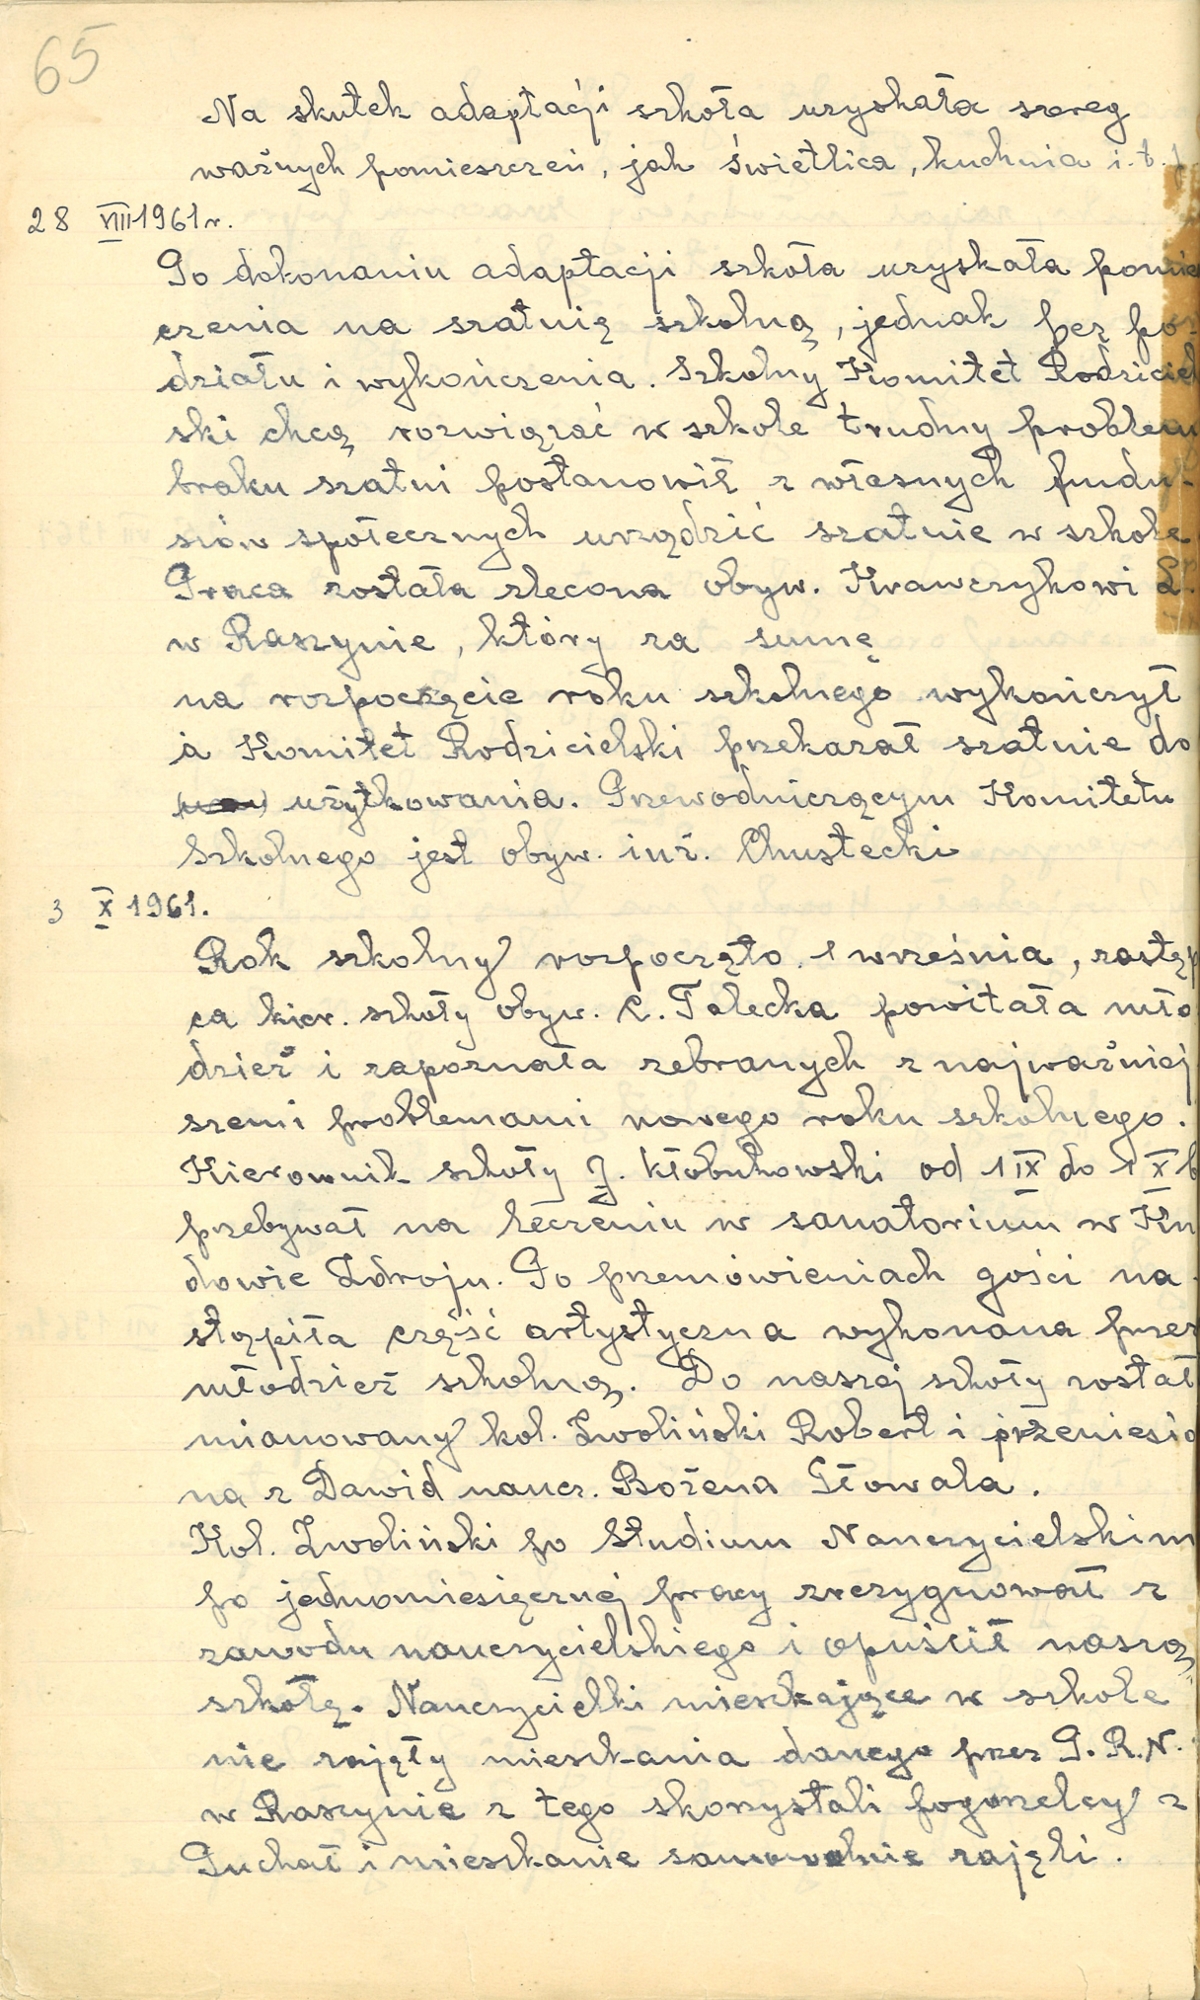 65
Na skutek adaptacji szkoła uzyskała szereg
ważnych pomieszczeń, jak świetlica, kuchnia i.t.
28 VIII 1961 r.
Po dokonaniu adaptacji szkoła uzyskała pomie
czenia na szatnię szkolną, jednak bez po-
działu i wykończenia. Szkolny Komitet Rodziciel
ski chcą rozwiązać w szkole trudny problem
braku szatni postanowił z własnych fundu-
szów społecznych urządzić szatnie w szkole
Praca została zlecona obyw. Krawczykowi L.
w Raszynie, który za sumę
na rozpoczęcie roku szkolnego wykończył
a Komitet Rodzicielski przekazał szatnie do
użytkowania. Przewodniczącym Komitetu
Szkolnego jest obyw. inż. Chustecki
3 X 1961.
Rok szkolny rozpoczęto 1 września, zastęp
ca kier. szkoły obyw. C. Talecka powitała mło
dzież i zapoznała zebranych z najważniej
szemi problemami nowego roku szkolnego.
Kierownik szkoły J. Kłobukowski od 1 IX do 1 X b
przebywał na leczeniu w sanatorium w Ku
dowie Zdroju. Po przemówieniach gości na-
stąpiła część artystyczna wykonana przez
młodzież szkolną. Do naszej szkoły został
mianowany kol. Zwoliński Robert i przeniesio
na z Dawid naucz. Bożena Głowala.
Kol. Zwoliński po Studium Nauczycielskim
po jednomiesięcznej pracy zrezygnował z
zawodu nauczycielskiego i opuścił naszą
szkołę. Nauczycielki mieszkające w szkole
nie zajęły mieszkania danego przez P.R.N.
w Raszynie z tego skorzystali pogorzelcy z
Puchał i mieszkanie samowolnie zajęli.